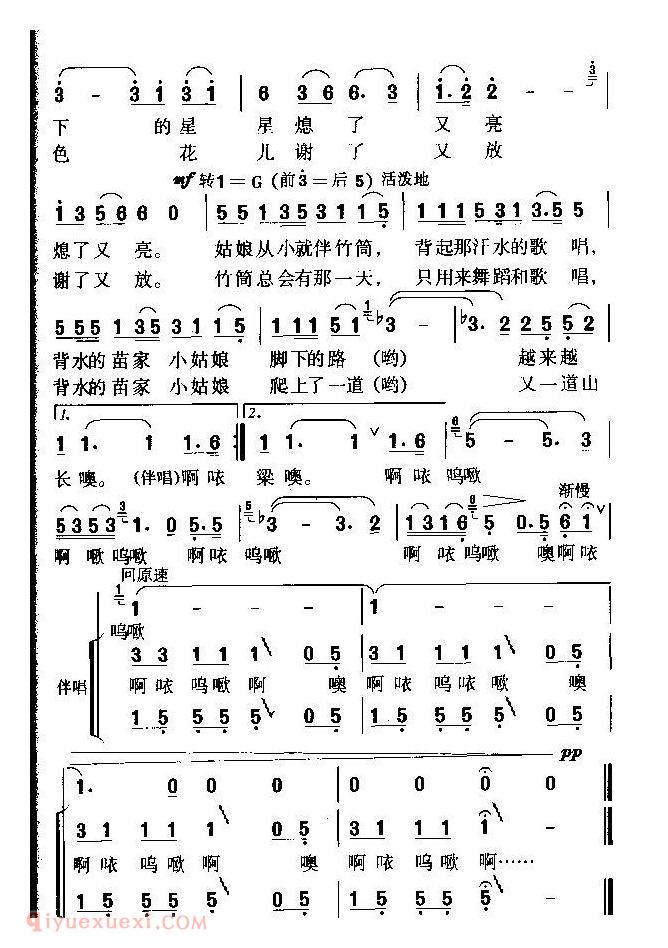 3 - 3 1 3 1 | 6 3 6 6. 3 | 1. 2 2 - 3
下 的星 星熄 了 又 亮
色 花 儿谢 了 又 放
mf 转1=G (前3=后5) 活泼地
1 3 5 6 6 6 0 | 5 5 1 3 5 3 1 1 5 | 1 1 1 5 3 1 3. 5 5
熄了又 亮。 姑娘从小就伴竹筒， 背起那汗水的歌 唱，
谢了又 放。 竹筒总会有那一天， 只用来舞蹈和歌 唱，
5 5 5 1 3 5 3 1 1 5 | 1 1 1 5 1 ♭3 - | ♭3. 2 2 5 5 2
背水的苗家 小姑娘 脚下的路 (哟) 越来越
背水的苗家 小姑娘 爬上了一道(哟) 又一道山
1. 2.
1 1. 1 1. 6 :| 1 1. 1 ∨ 1. 6 | 6 5 - 5. 3
长噢。 (伴唱)啊咴 梁噢。 啊咴 呜噉
渐慢
5 3 5 3 3 1. 0 5. 5 | 5 ♭3 - 3. 2 | 1 3 1 6 6 5 0. 5 6 1 ∨
啊 噉呜噉 啊咴 呜噉 啊咴 呜噉 噢啊咴
回原速
1 1 - - - | 1 - - -
呜噉
3 3 1 1 1 1 0 5 | 3 1 1 1 1 0 5
伴唱 啊 咴 呜噉 啊 噢 啊咴 呜咴 啊 噢
1 5 5 5 5 0 5 | 1 5 5 5 5 0 5
pp
1. 0 0 0 0 | 0 0 0 0
3 1 1 1 1 0 5 | 3 1 1 1 1 -
啊咴 呜噉 啊 噢 啊咴 呜噉 啊……
1 5 5 5 5 0 5 | 1 5 5 5 5 -
qiyuexuexi.com